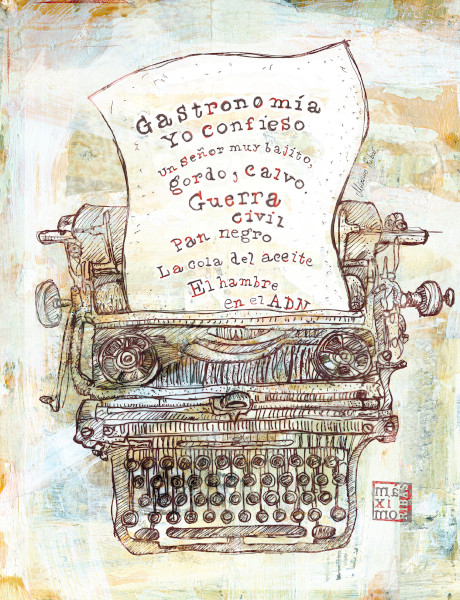 Gastronomía
Yo confieso
un señor muy bajito,
gordo y calvo.
Guerra
civil
Pan negro
La cola del aceite
El hambre
en el ADN
má
xi
mo